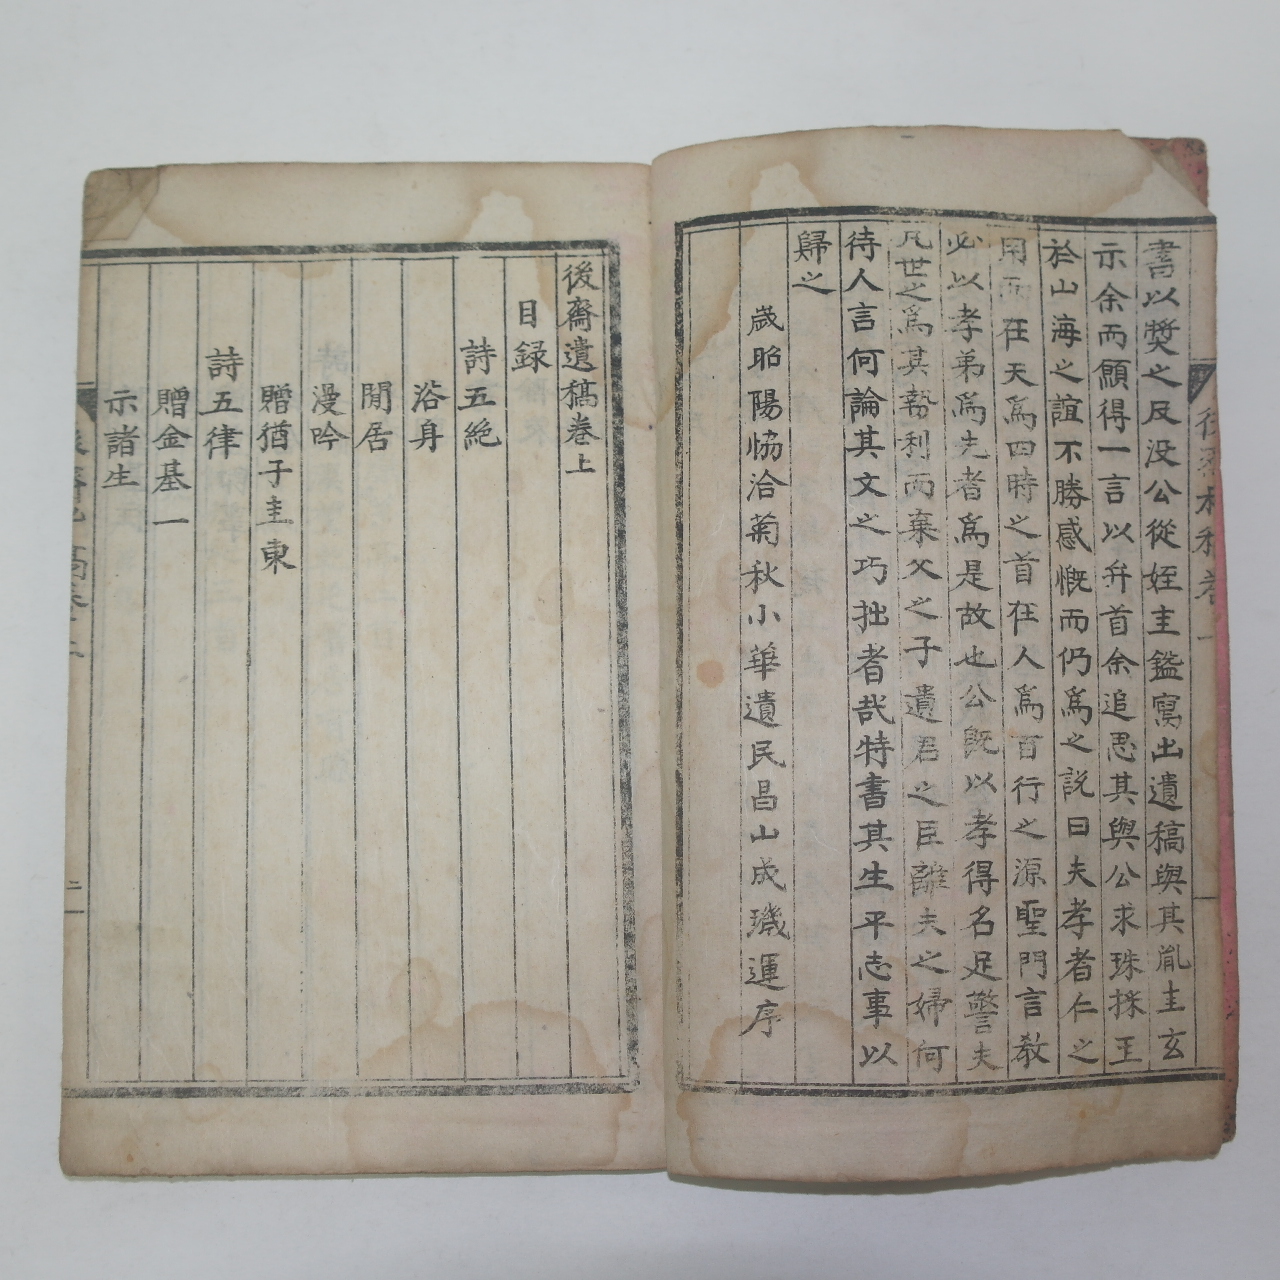 書以奬之及没公從姪圭鑑寫出遺稿與其胤圭玄
示余而願得一言以弁首余追思其與公求珠採玉
於山海之誼不勝感慨而仍爲之説曰夫孝者仁之
用而在天爲四時之首在人爲百行之源聖門言敎
必以孝弟爲先者爲是故也公旣以孝得名足警夫
凡世之爲其勢利而棄父之子遺君之臣離夫之婦何
待人言何論其文之巧拙者哉特書其生平志事以
歸之
歲昭陽恊洽菊秋小華遺民昌山成璣運序
後齋遺稿卷上
目録
詩五絶
浴身
閒居
漫吟
贈猶子圭東
詩五律
贈金基一
示諸生
二